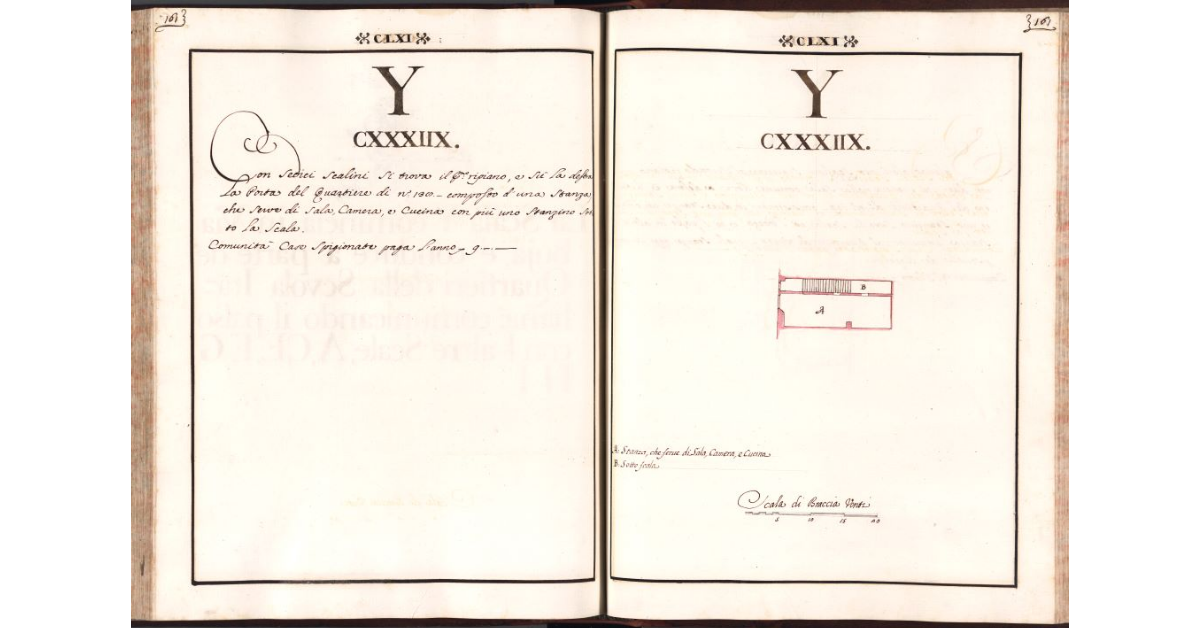 161
CLXI
Y
CXXXIIX.
Con Sedici Scalini Si trova il Pº. ripiano, e Sù la destra
La Porta del Quartiere di nº. 130 composto d'una Stanza,
che Serve di Sala, Camera, e Cucina con più uno Stanzino So
to la Scala.
Comunità Case Spigionate paga l'anno 9.
161
CLXI
Y
CXXXIIX.
B
A
A. Stanza, che serve di Sala, Camera, e Cucina
B. Sotto scala
Scala di Braccia Venti
5 10 15 20